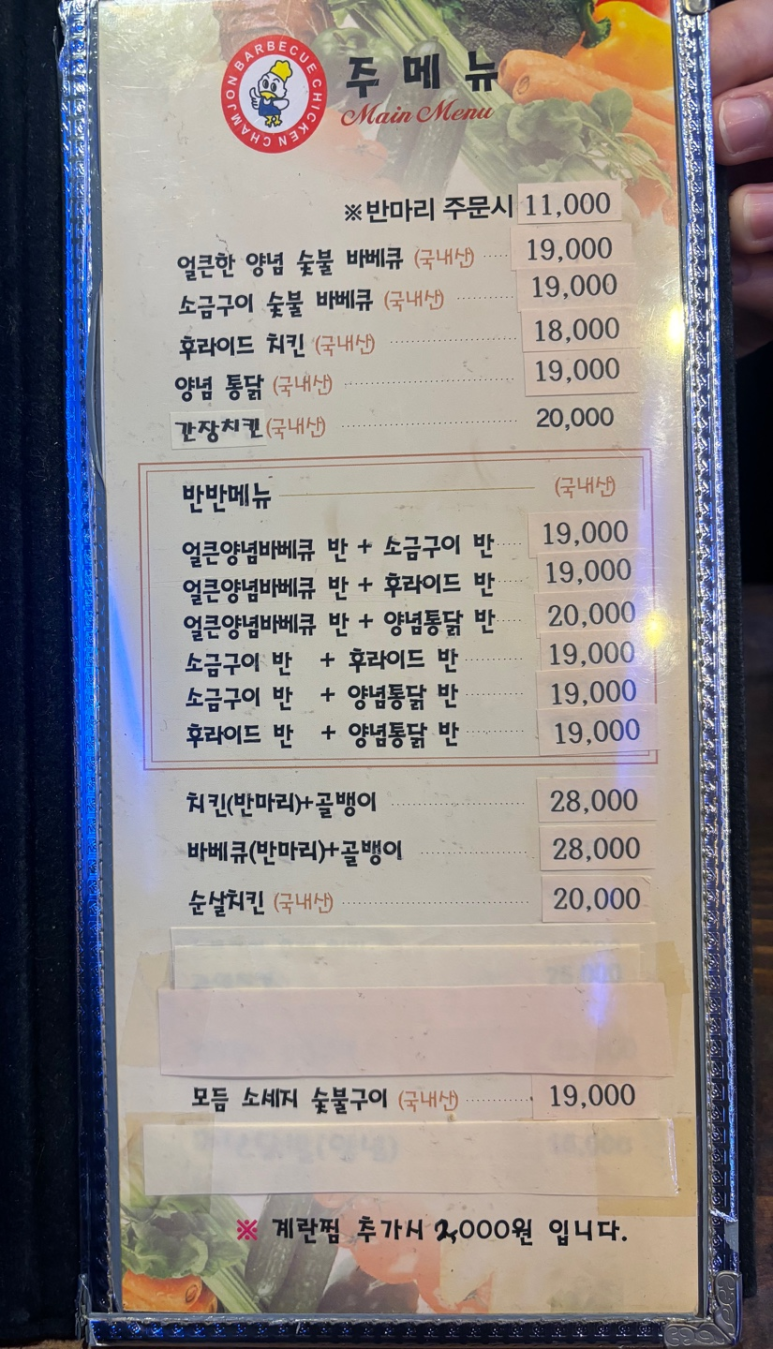 BARBECUE CHICKEN CHAMJON
주 메 뉴
Main Menu
※반마리 주문시 11,000
얼큰한 양념 숯불 바베큐 (국내산) 19,000
소금구이 숯불 바베큐 (국내산) 19,000
후라이드 치킨 (국내산) 18,000
양념 통닭 (국내산) 19,000
간장치킨 (국내산) 20,000
반반메뉴 (국내산)
얼큰양념바베큐 반 + 소금구이 반 19,000
얼큰양념바베큐 반 + 후라이드 반 19,000
얼큰양념바베큐 반 + 양념통닭 반 20,000
소금구이 반 + 후라이드 반 19,000
소금구이 반 + 양념통닭 반 19,000
후라이드 반 + 양념통닭 반 19,000
치킨(반마리)+골뱅이 28,000
바베큐(반마리)+골뱅이 28,000
순살치킨 (국내산) 20,000
모듬 소세지 숯불구이 (국내산) 19,000
※ 계란찜 추가시 2,000원 입니다.